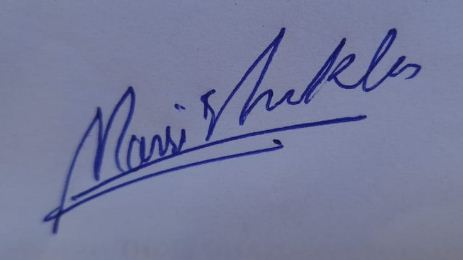 Mansi Shukla